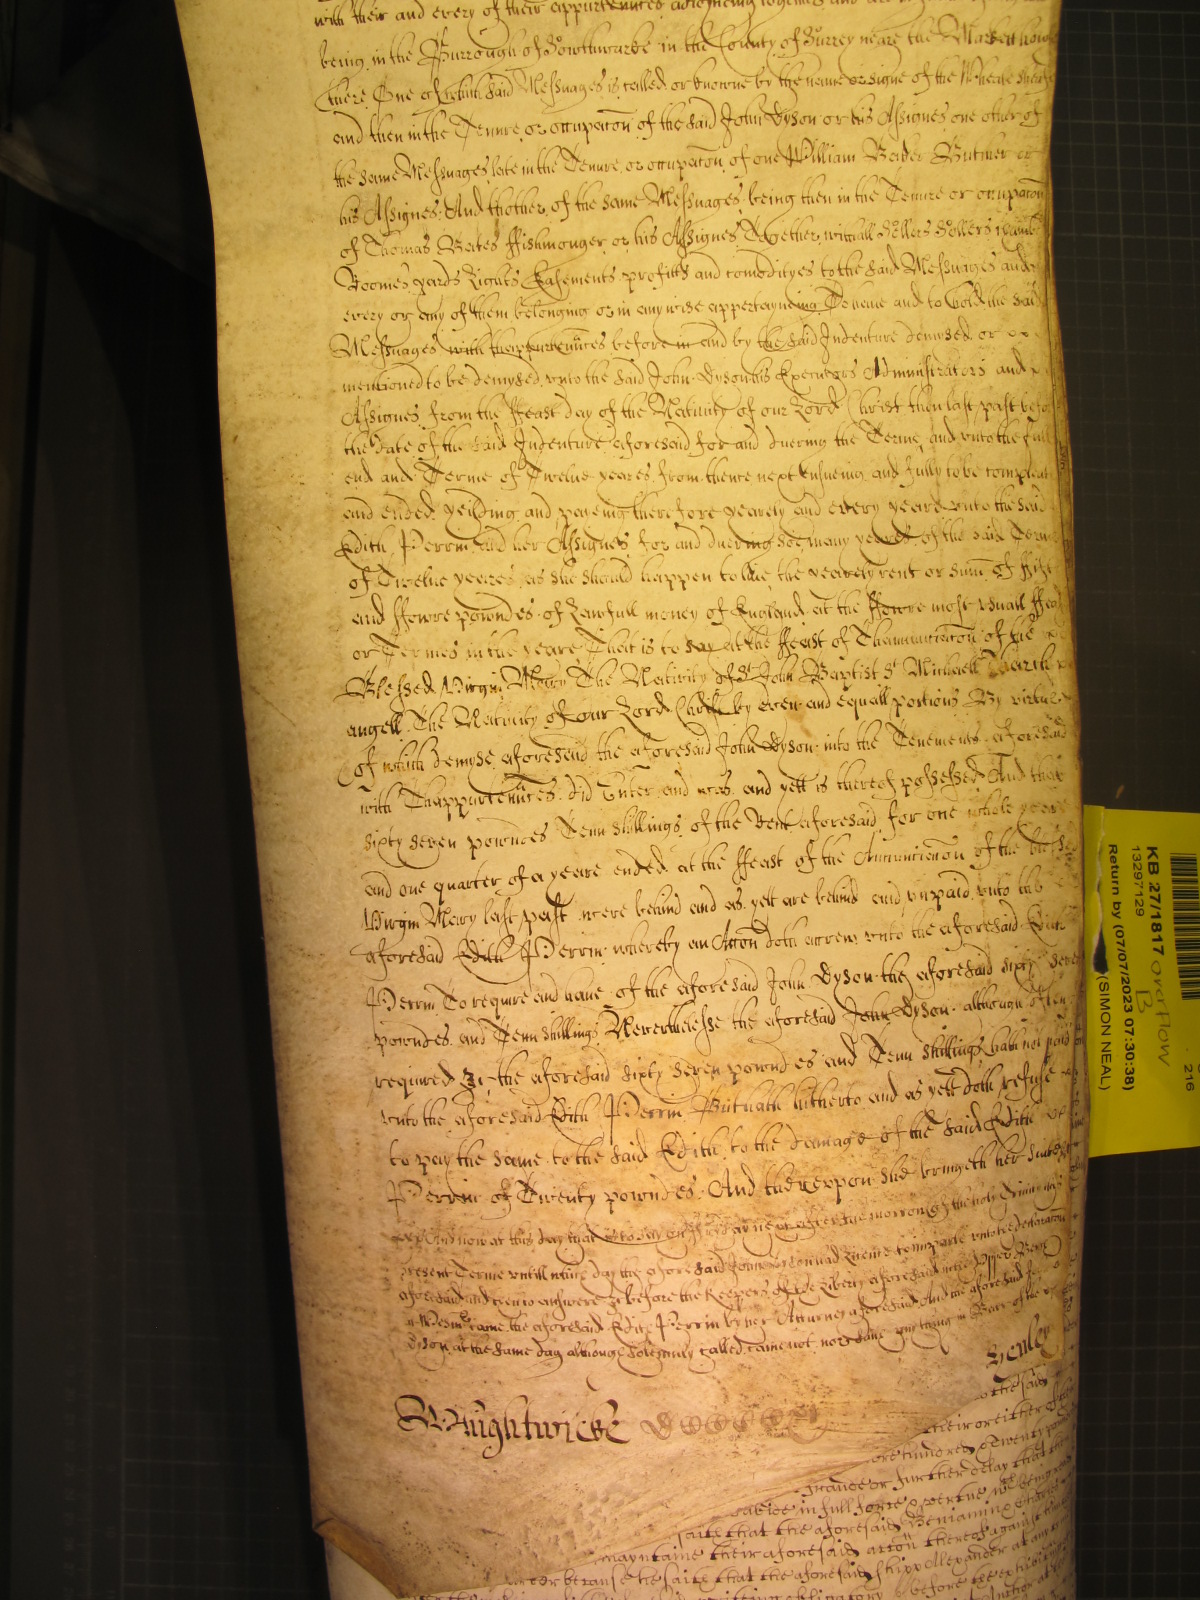 with their and every of their appurtennces adioyneing togither and
being in the Burrough of Sowthwarke in the County of Surrey neare the Markett howse
there One of which said Messuages is called or knowne by the name or signe of the Wheate sheafe
and then in the Tenure or occupacon of the said John Dyson or his Assignes one other of
the same Messuages late in the Tenure or occupacon of one William Butcher or
his Assignes And thother of the same Messuages being then in the Tenure or occupacon
of Thomas Bates ffishmonger or his Assignes Together withall Sellers Sollers Chamb
Roomes yards Rights Easements profitts and comodityes to the said Messuages and
every or any of them belonging or in any wise apperteyneing To have and to hold the said
Messuages with thappurtennces before in and by the said Indenture demysed or
mentioned to be demysed unto the said John Dyson his Executors Administrators and
Assignes from the ffeast day of the Nativity of our Lord Christ then last past before
the date of the said Indenture aforesaid for and dureing the Terme and unto the full
end and Terme of Twelve yeares from thence next ensueing and fully to be compleat
and ended yeilding and payeing therefore yearely and every yeare unto the said
Edith Perrin and her Assignes for and dureing soe many yeares of the said Terme
of Twelve yeares as she should happen to live the yearely rent or sum of ffift
and ffowre powndes of Lawfull money of England at the ffowre most usuall ffeas
or Termes in the yeare That is to say at the ffeast of Thannunciacon of the
Blessed Virgin Mary The Nativity of St John Baptist St Michaell Tharch
angell The Nativity of our Lord Christ by even and equall portions By virtue
of which demyse aforesaid the aforesaid John Dyson into the Tenements aforesaid
with Thappurtennces did Enter and was and yett is thereof possessed And that
sixty seven powndes Tenn shillings of the Rent aforesaid for one whole yeare
and one quarter of a yeare ended at the ffeast of the Annunciacon of the blessed
Virgin Mary last past were behind and as yett are behind and unpaid unto the
aforesaid Edith Perrin whereby an Accon doth accrew unto the aforesaid Edith
Perrin To require and have of the aforesaid John Dyson the aforesaid sixty seven
powndes and Tenn shillings Neverthelesse the aforesaid John Dyson although often
required &c the aforesaid sixty seven powndes and Tenn shillings hath not paid
unto the aforesaid Edith Perrin But hath hitherto and as yett doth refuse
to pay the same to the said Edith to the damage of the said Edith
Perrin of Twenty powndes And thereupon she bringeth her suite
And now at this day that is to say on ffryday next after the morrow of the holy Trinity
present Terme untill which day the aforesaid John Dyson had Licence to imparle unto the declaracon
aforesaid and then to answere &c before the Keepers of the Liberty aforesaid in the Upper Bench
came the aforesaid Edith Perrin by her Attorney aforesaid And the aforesaid
Dyson at the same day although solemnly called came not nor saide any thing in Barr of the
Henley
Baughtwicke
to the said
their or either
one hundred & twenty
or further delay that
in full force & vertue
saith that the aforesaid Beniamine Charles
mayntaine their aforesaid accon thereof against
because he saith that the aforesaid Skipp Allexander at
before the exhibiting
KB 27/1817 overflow
B
13297129
Return by (07/07/2023 07:30:38)
(SIMON NEAL)
216